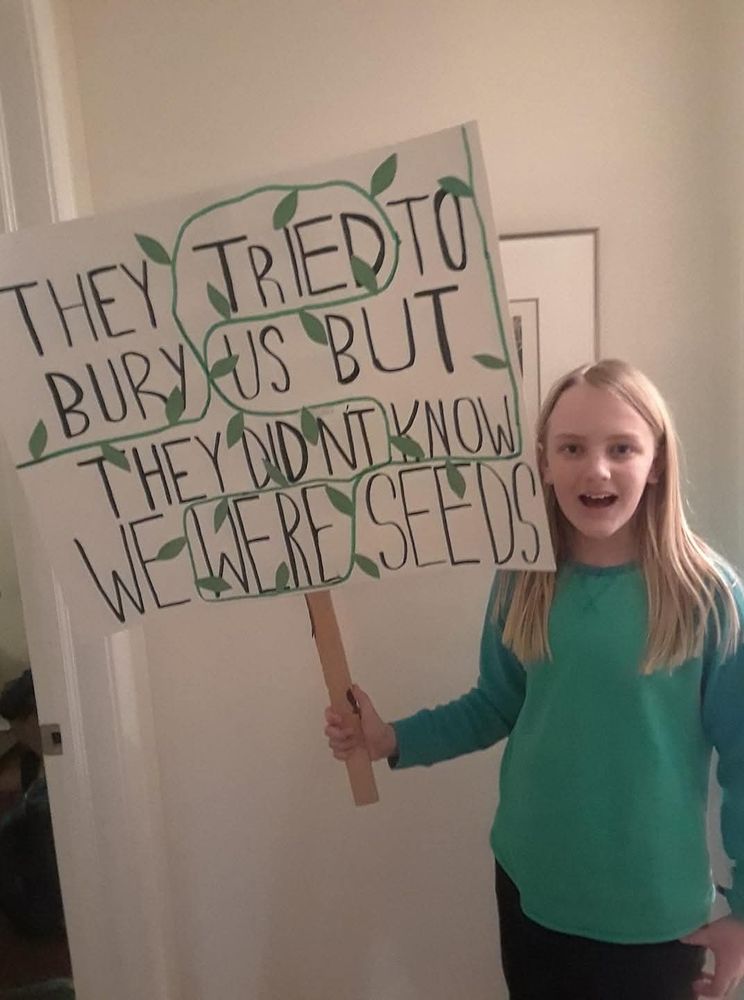 THEY TRIED TO
BURY US BUT
THEY DIDN'T KNOW
WE WERE SEEDS